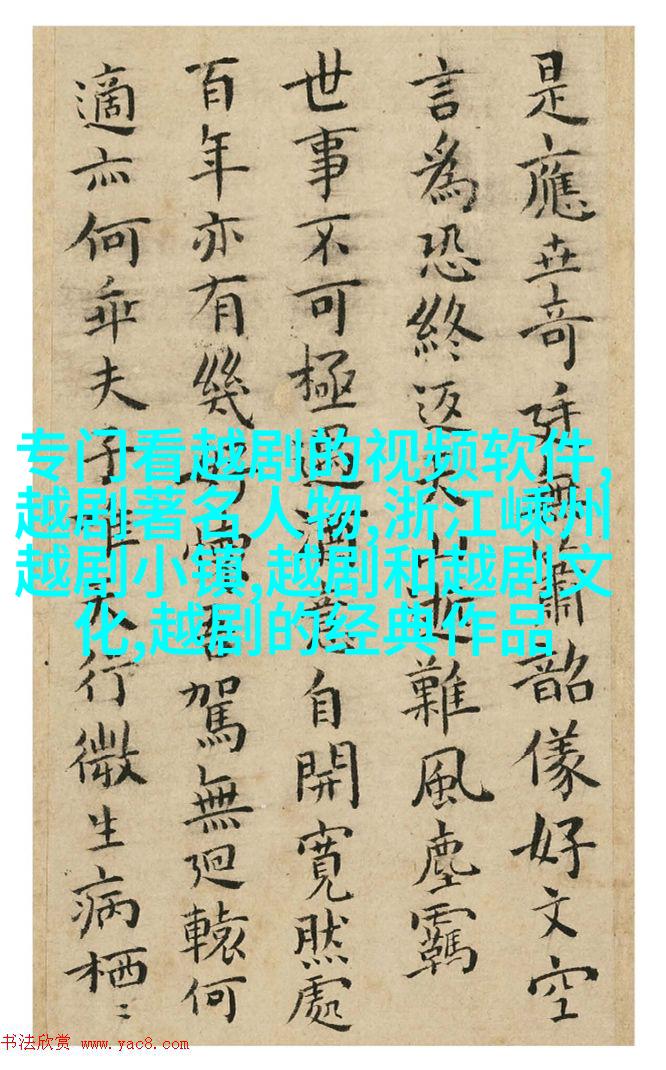 是應世奇無簫韶儀好文空
言為恐終返逝難風塵羈
世事不可極過滿意自開寬然處
百年亦有幾靈駕無迴轅何
適亦何乖夫子雖行微生病栖〻
专门看越剧的视频软件,
越剧著名人物,浙江嵊州
越剧小镇,越剧和越剧文
化,越剧的经典作品
书法欣赏 www.yac8.com